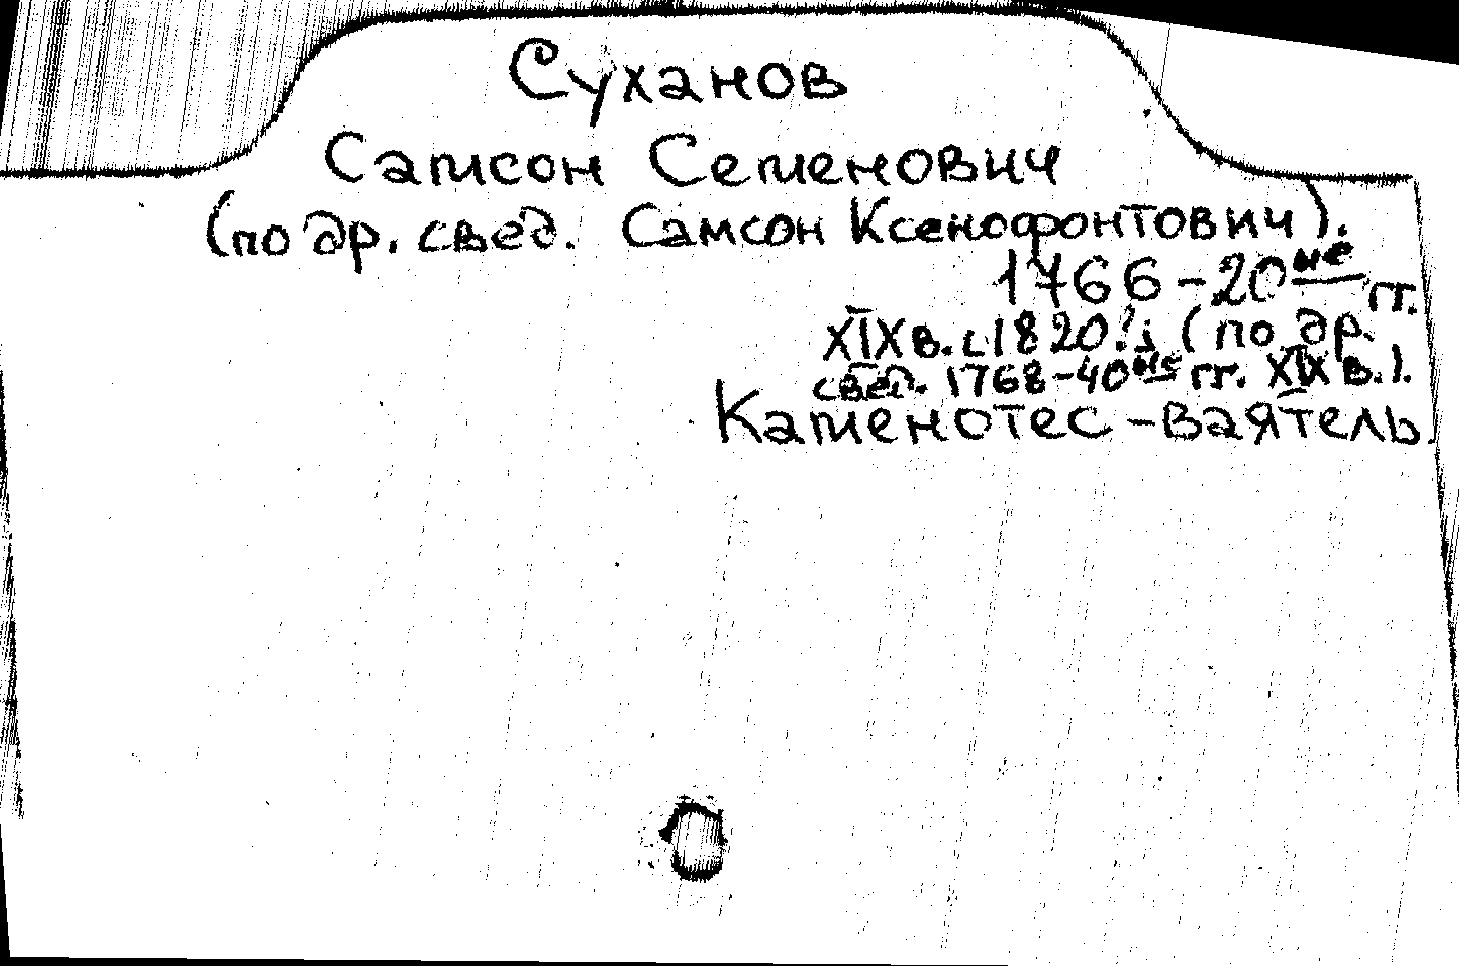 Суханов
Самсон Семенович
(по др. свед. Самсон Ксенофонтович).
1766-20ые гг.
XIX в. с 1820?; (по др.
свед. 1768-40ые гг. XIX в.).
Каменотес-ваятель